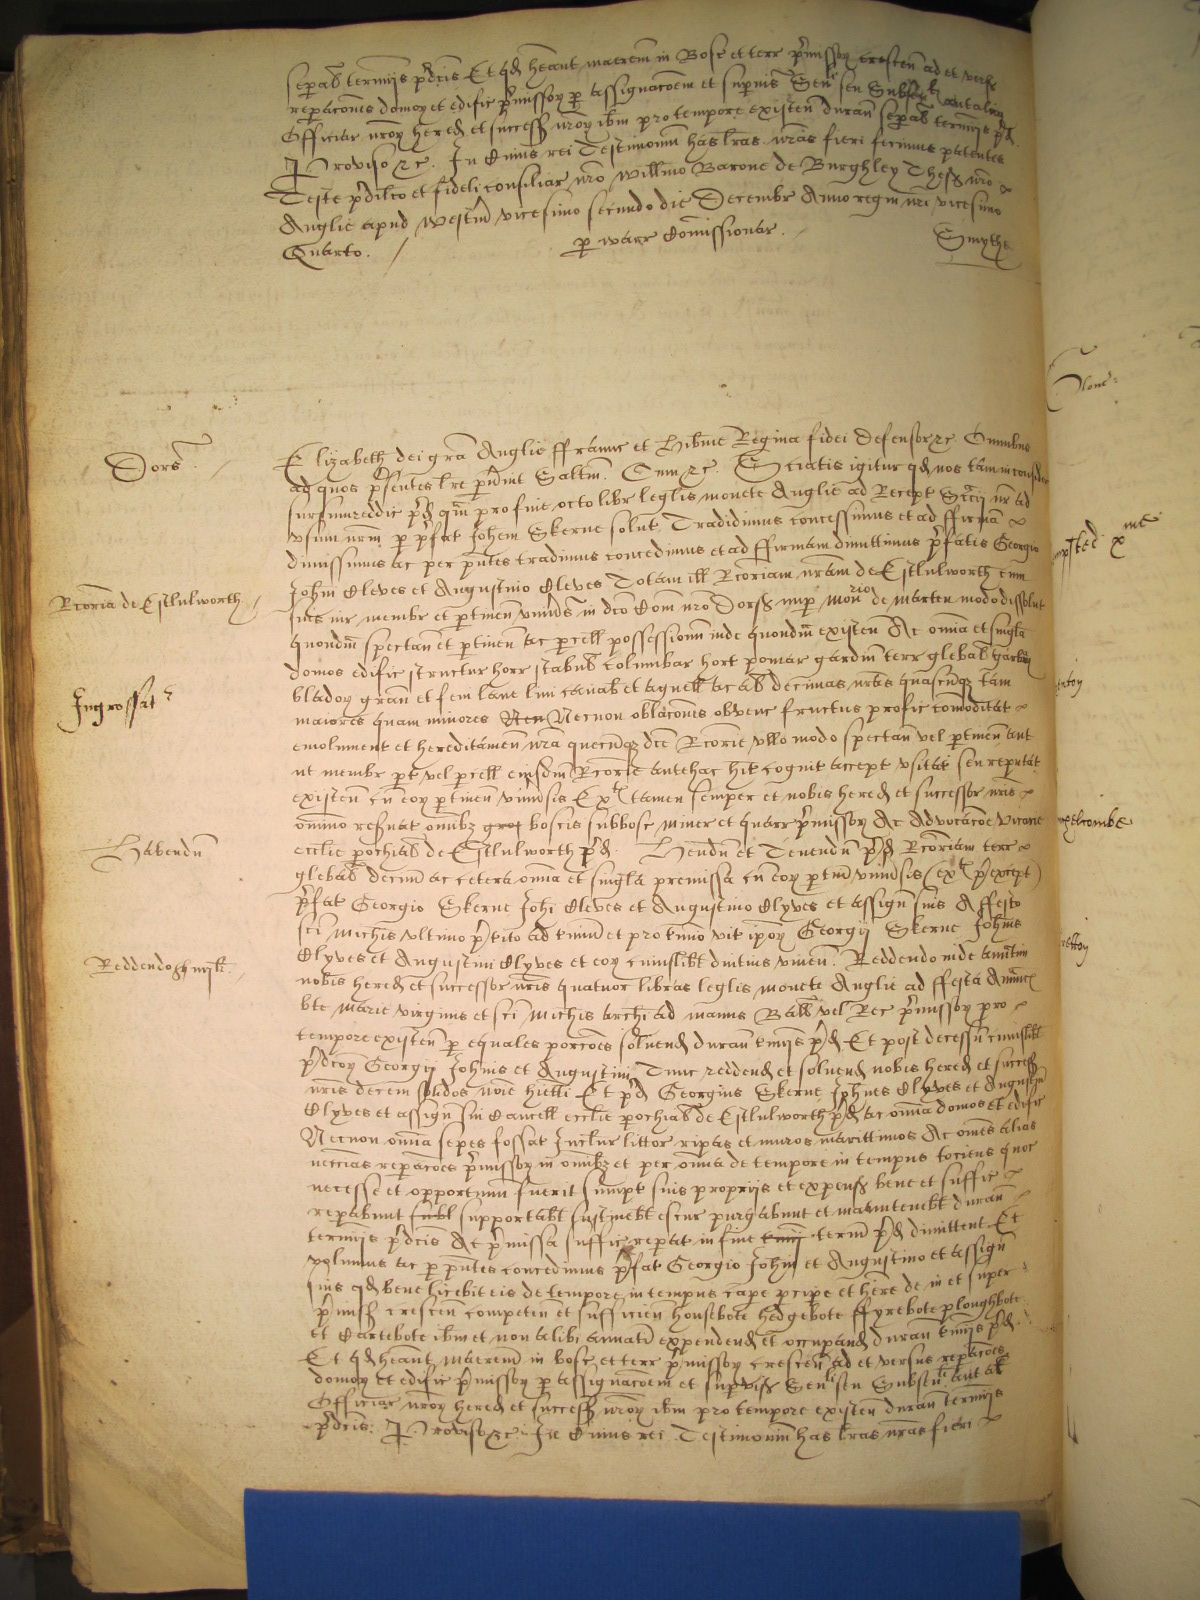 sepal terminis pdcis Et qd heant maerem in Bosc et terr pmissoȝ crescen ad et versus
repacones domoȝ et edific pmissoȝ p assignacoem et supvis Senli seu Subsenli aut alioȝ
Officiar nroȝ hered et success nroȝ ibm pro tempore existen duran sepal terminis pd
Proviso &c. In Cuius rei Testimonium has lras nras fieri fecimus patentes
Teste pdilco et fideli consiliar nro Willmo Barone de Burghley Thes nro
Anglie apud Westm vicesimo secundo die Decembr Anno regni nri vicesimo
Quarto. p warr Comissionar. Smythe
Dors
Elizabeth dei gra Anglie ffrancie et Hibnie Regina fidei defensor &c Omnibus
ad quos psentes lre pvenint Saltm. Cum &c. Sciatis igitur qd nos tam in consideracoe
sursumreddic pd qm pro fine octo libr leglis monete Anglie ad Recept Sccij nri ad
usum nrm p pfat Johem Skerne solut Tradidimus concessimus et ad ffirmam
dimissimus ac per pntes tradimus concedimus et ad ffirmam dimittimus pfatis Georgio
Johni Cleves et Augustino Cleves Totam ill Rcoriam nram de Estlulworth cum
Rcoria de Estlulworth
suis iur membr et ptinen univsis in dco Com nro Dors nup Monrio de Marten modo dissolut
quondm spectan et ptinen ac pcell possessionu inde quondm existen Ac omia et singla
domos edific structur horr stabul columbar hort pomar gardin terr glebal garbas
Ingrossat
bladoȝ gran et feni lane lini canab et agnell ac al decimas nras quascunqȝ tam
maiores quam minores Necnon oblacones obvenc fructus profic comoditat
emolument et hereditamen nra quecunqȝ dce Rcorie ullo modo spectan vel ptinen aut
ut membr pt vel pcell eiusdm Rcorie antehac hit cognit accept usitat seu reputat
existen cu eoȝ ptinen univsis Ext tamen semper et nobis hered et successor nris
omnino resvat omibȝ boscis subbosc miner et quarr pmissoȝ Ac Advocacoe vicarie
Habendu
ecclie pochial de Estlulworth pd. Hendu et Tenendu pd Rcoriam terr
glebal decim ac cetera omia et singla premissa cu eoȝ ptin univsis (ext pexcept)
pfat Georgio Skerne Johi Cleves et Augustino Clyves et assign suis A ffesto
sci Michis ultimo ptito ad tminu et pro tmino vit ipoȝ Georgij Skerne Johnis
Clyves et Augustini Clyves et eoȝ cuiuslibt diutius viven. Reddendo inde annuatim
Reddendo
nobis hered et successor nris quatuor libras leglis monete Anglie ad ffesta Annunc
bte Marie virginis et sci Michis Archi ad manus Ball vel Rec pmissoȝ pro
tempore existen p equales porcoes solvend duran tmijs pd Et post decessu cuiuslibt
pdcoȝ Georgij Johnis et Augustini Tunc reddend et solvend nobis hered et success
nris decem solidos noie hietti Et pd Georgius Skerne Johnes Clyves et Augustin
Clyves et assign sui Cancell ecclie pochial de Estlulworth pd ac omia domos et edific
Necnon omia sepes fossat Inclur littor ripas et muros marittimos Ac omes alias
nccias repacoes pmissoȝ in omibȝ et per omia de tempore in tempus tociens quoc
necesse et opportunu fuerit sumpt suis proprijs et expens bene et suffic
repabunt supportabt sustinebt escur purgabunt et manutenebt duran
terminis pdcis Ac pmissa suffic repat in fine termi pd dimittent Et
volumus ac p pntes concedimus pfat Georgio Johni et Augustino et assign
suis qd bene licebit eis de tempore in tempus cape pcipe et here de in et super
pmiss crescen competen et sufficien housebote hedgebote ffyrebote ploughbote
et Cartebote ibm et non alibi annuati expendend et occupand duran tmijs pd
Et qd heant maerem in bosc et terr pmissoȝ crescen ad et versus repacoes
domoȝ et edific pmissoȝ p assignacoem et supvis Senli seu Subsenli aut al
Officiar nroȝ hered et success nroȝ ibm pro tempore existen duran terminis
pdcis. Proviso &c. In Cuius rei Testimoniu has lras nras fieri